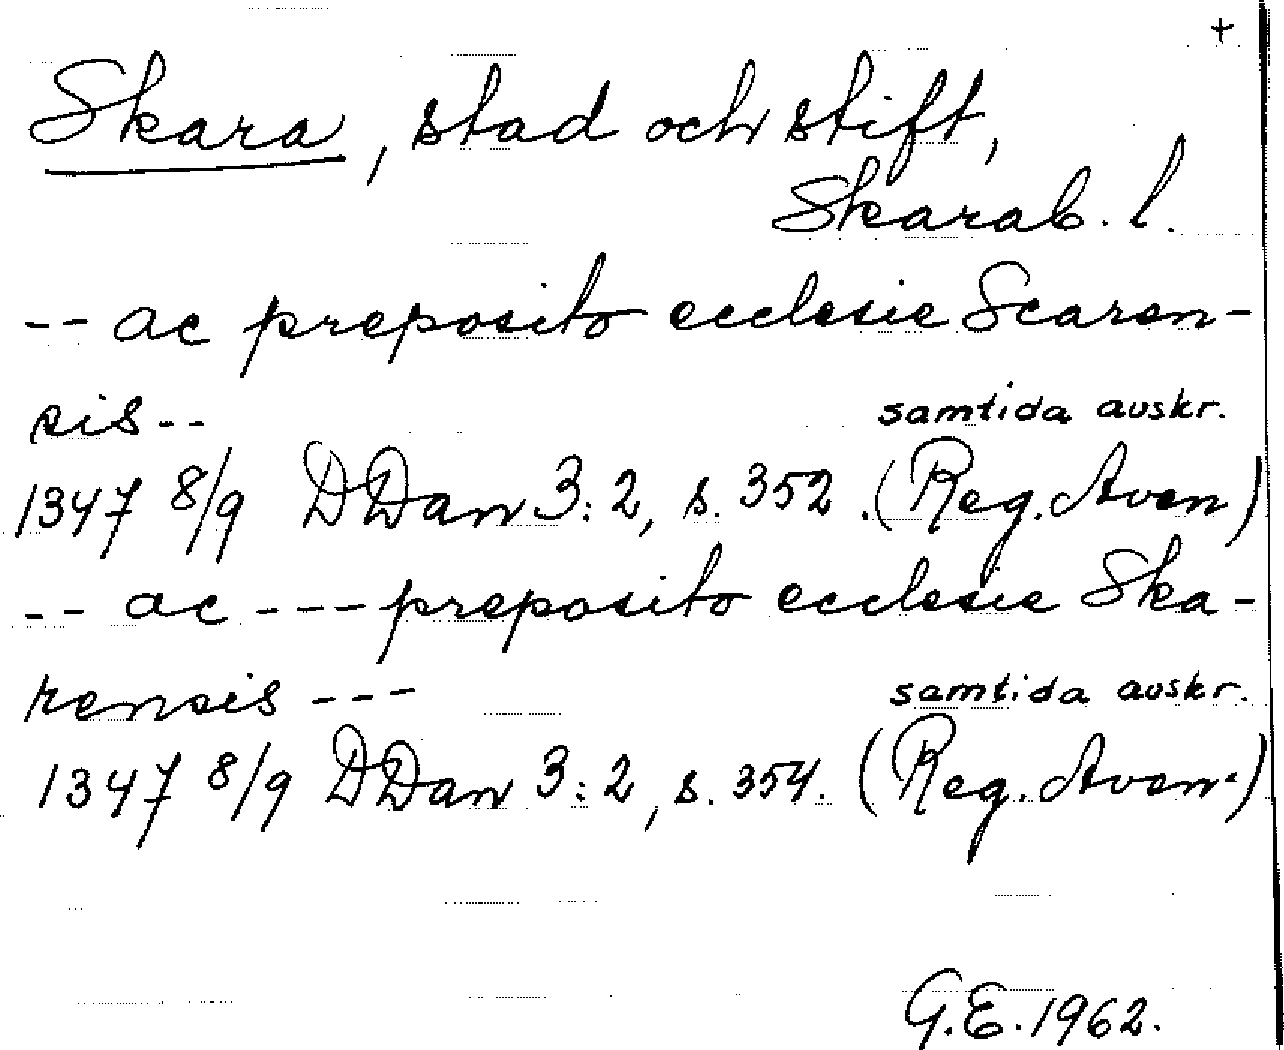 +
Skara, stad och stift,
Skarab. l.
-- ac preposito ecclesie Scaren-
sis -- samtida avskr.
1347 8/9 DDan 3:2, s. 352. (Reg. Aven)
-- ac --- preposito ecclesie Ska-
rensis --- samtida avskr.
1347 8/9 DDan 3:2, s. 354. (Reg. Aven.)
G.E. 1962.